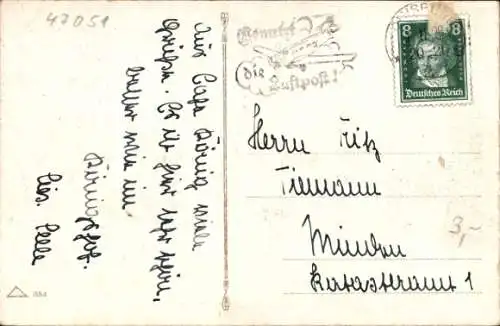 47051
Aus Cafe König viele
Grüße. Es ist hier sehr schön,
besser wie im
Königshof.
Benutzt
Die
Luftpost!
8 8
Deutsches Reich
Herrn Fritz
Tiemann
Minden
Katasteramt 1
3,-